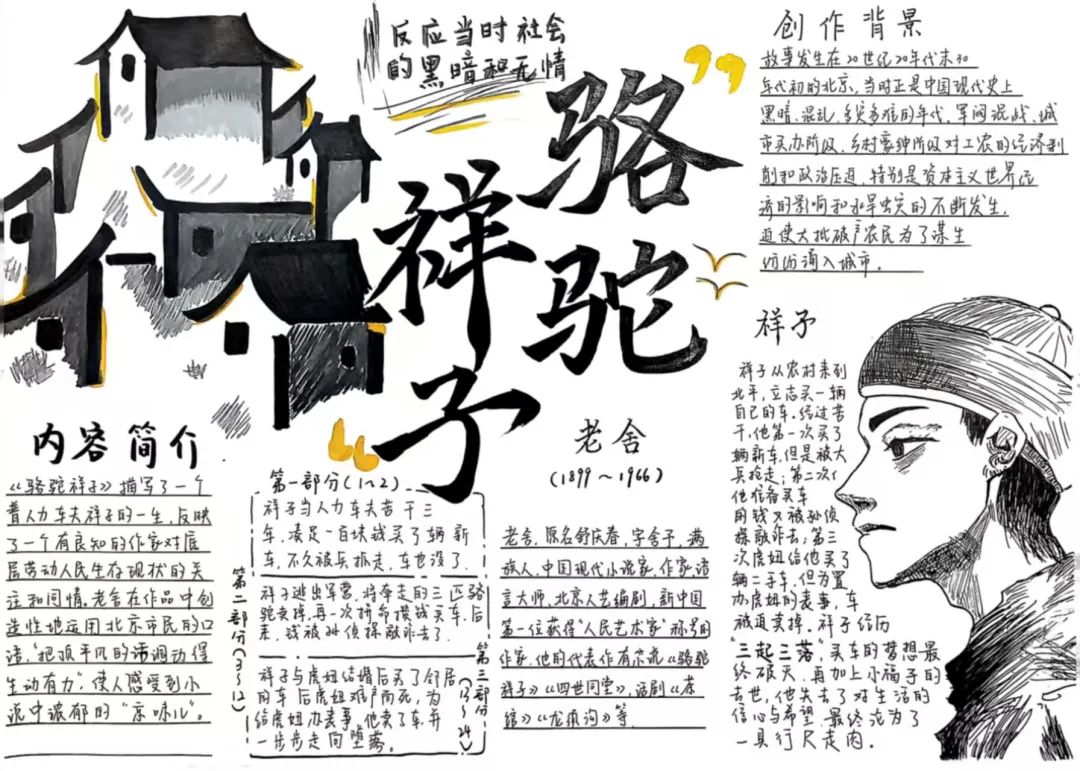 反应当时社会
的黑暗和无情
骆驼
祥子
创作背景
故事发生在20世纪20年代末30
年代初的北京,当时正是中国现代史上
黑暗、混乱、多灾多难的年代,军阀混战、城
市买办阶级、乡村豪绅阶级对工农的经济剥
削和政治压迫,特别是资本主义世界经
济的影响和水旱虫灾的不断发生,
迫使大批破产农民为了谋生
纷纷涌入城市。
祥子
祥子从农村来到
北平,立志买一辆
自己的车,经过苦
干,他第一次买了
辆新车,但是被大
兵抢走;第二次
他准备买车
的钱又被孙侦
探敲诈去;第三
次虎妞给他买了
辆二手车,但为置
办虎妞的丧事,车
被迫卖掉。祥子经历
“三起三落”买车的梦想最
终破灭,再加上小福子的
去世,他失去了对生活的
信心与希望,最终沦为了
一具行尸走肉。
内容简介
《骆驼祥子》描写了一个
普人力车夫祥子的一生,反映
了一个有良知的作家对底
层劳动人民生存现状的关
注和同情。老舍在作品中创
造性地运用北京市民的口
语,“把顶平凡的话调动得
生动有力”,使人感受到小
说中浓郁的“京味儿”。
第一部分(1~2)
祥子当人力车夫苦干三
年,凑足一百块钱买了辆新
车,不久被兵抓走,车也没了.
第二部分(3~12)
祥子逃出军营,将牵走的三匹骆
驼卖掉,再一次拼命攒钱买车,后
来,钱被孙侦探敲诈去了.
第三部分(13~24)
祥子与虎妞结婚后买了邻居
的车后虎妞难产而死,为
给虎妞办丧事,他卖了车,并
一步步走向堕落。
老舍
(1899~1966)
老舍,原名舒庆春,字舍予,满
族人,中国现代小说家、作家,语
言大师、北京人艺编剧,新中国
第一位获得“人民艺术家”称号的
作家,他的代表作有小说《骆驼
祥子》《四世同堂》,话剧《茶
馆》《龙须沟》等.